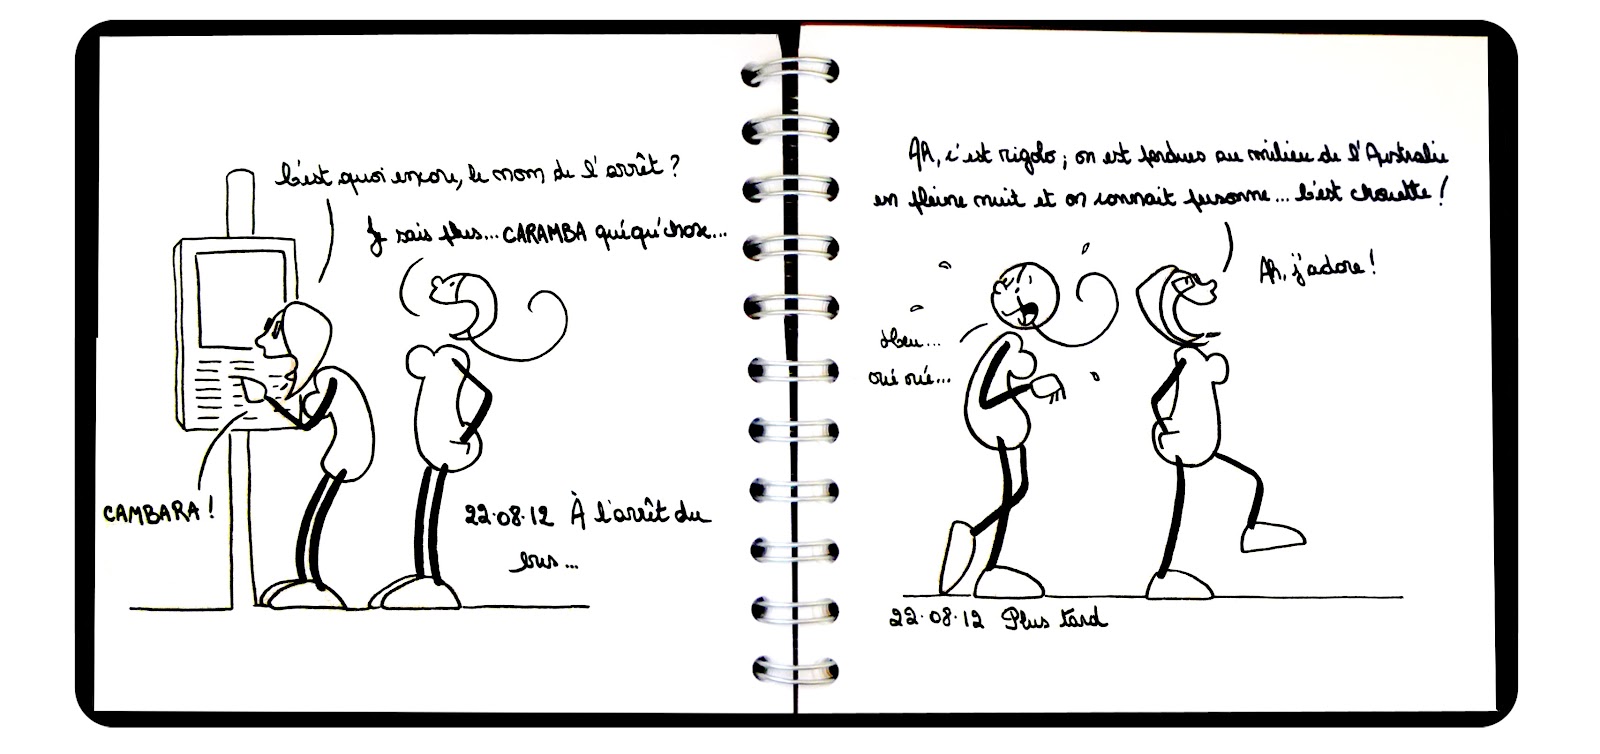 C'est quoi encore, le nom de l'arrêt ?
Je sais plus... CARAMBA quéqu'chose...
CAMBARA !
22.08.12 À l'arrêt du
bus...
Ah, c'est rigolo ; on est perdues au milieu de l'Australie
en pleine nuit et on connait personne... C'est chouette !
Ah, j'adore !
Heu...
oué oué...
22.08.12 Plus tard